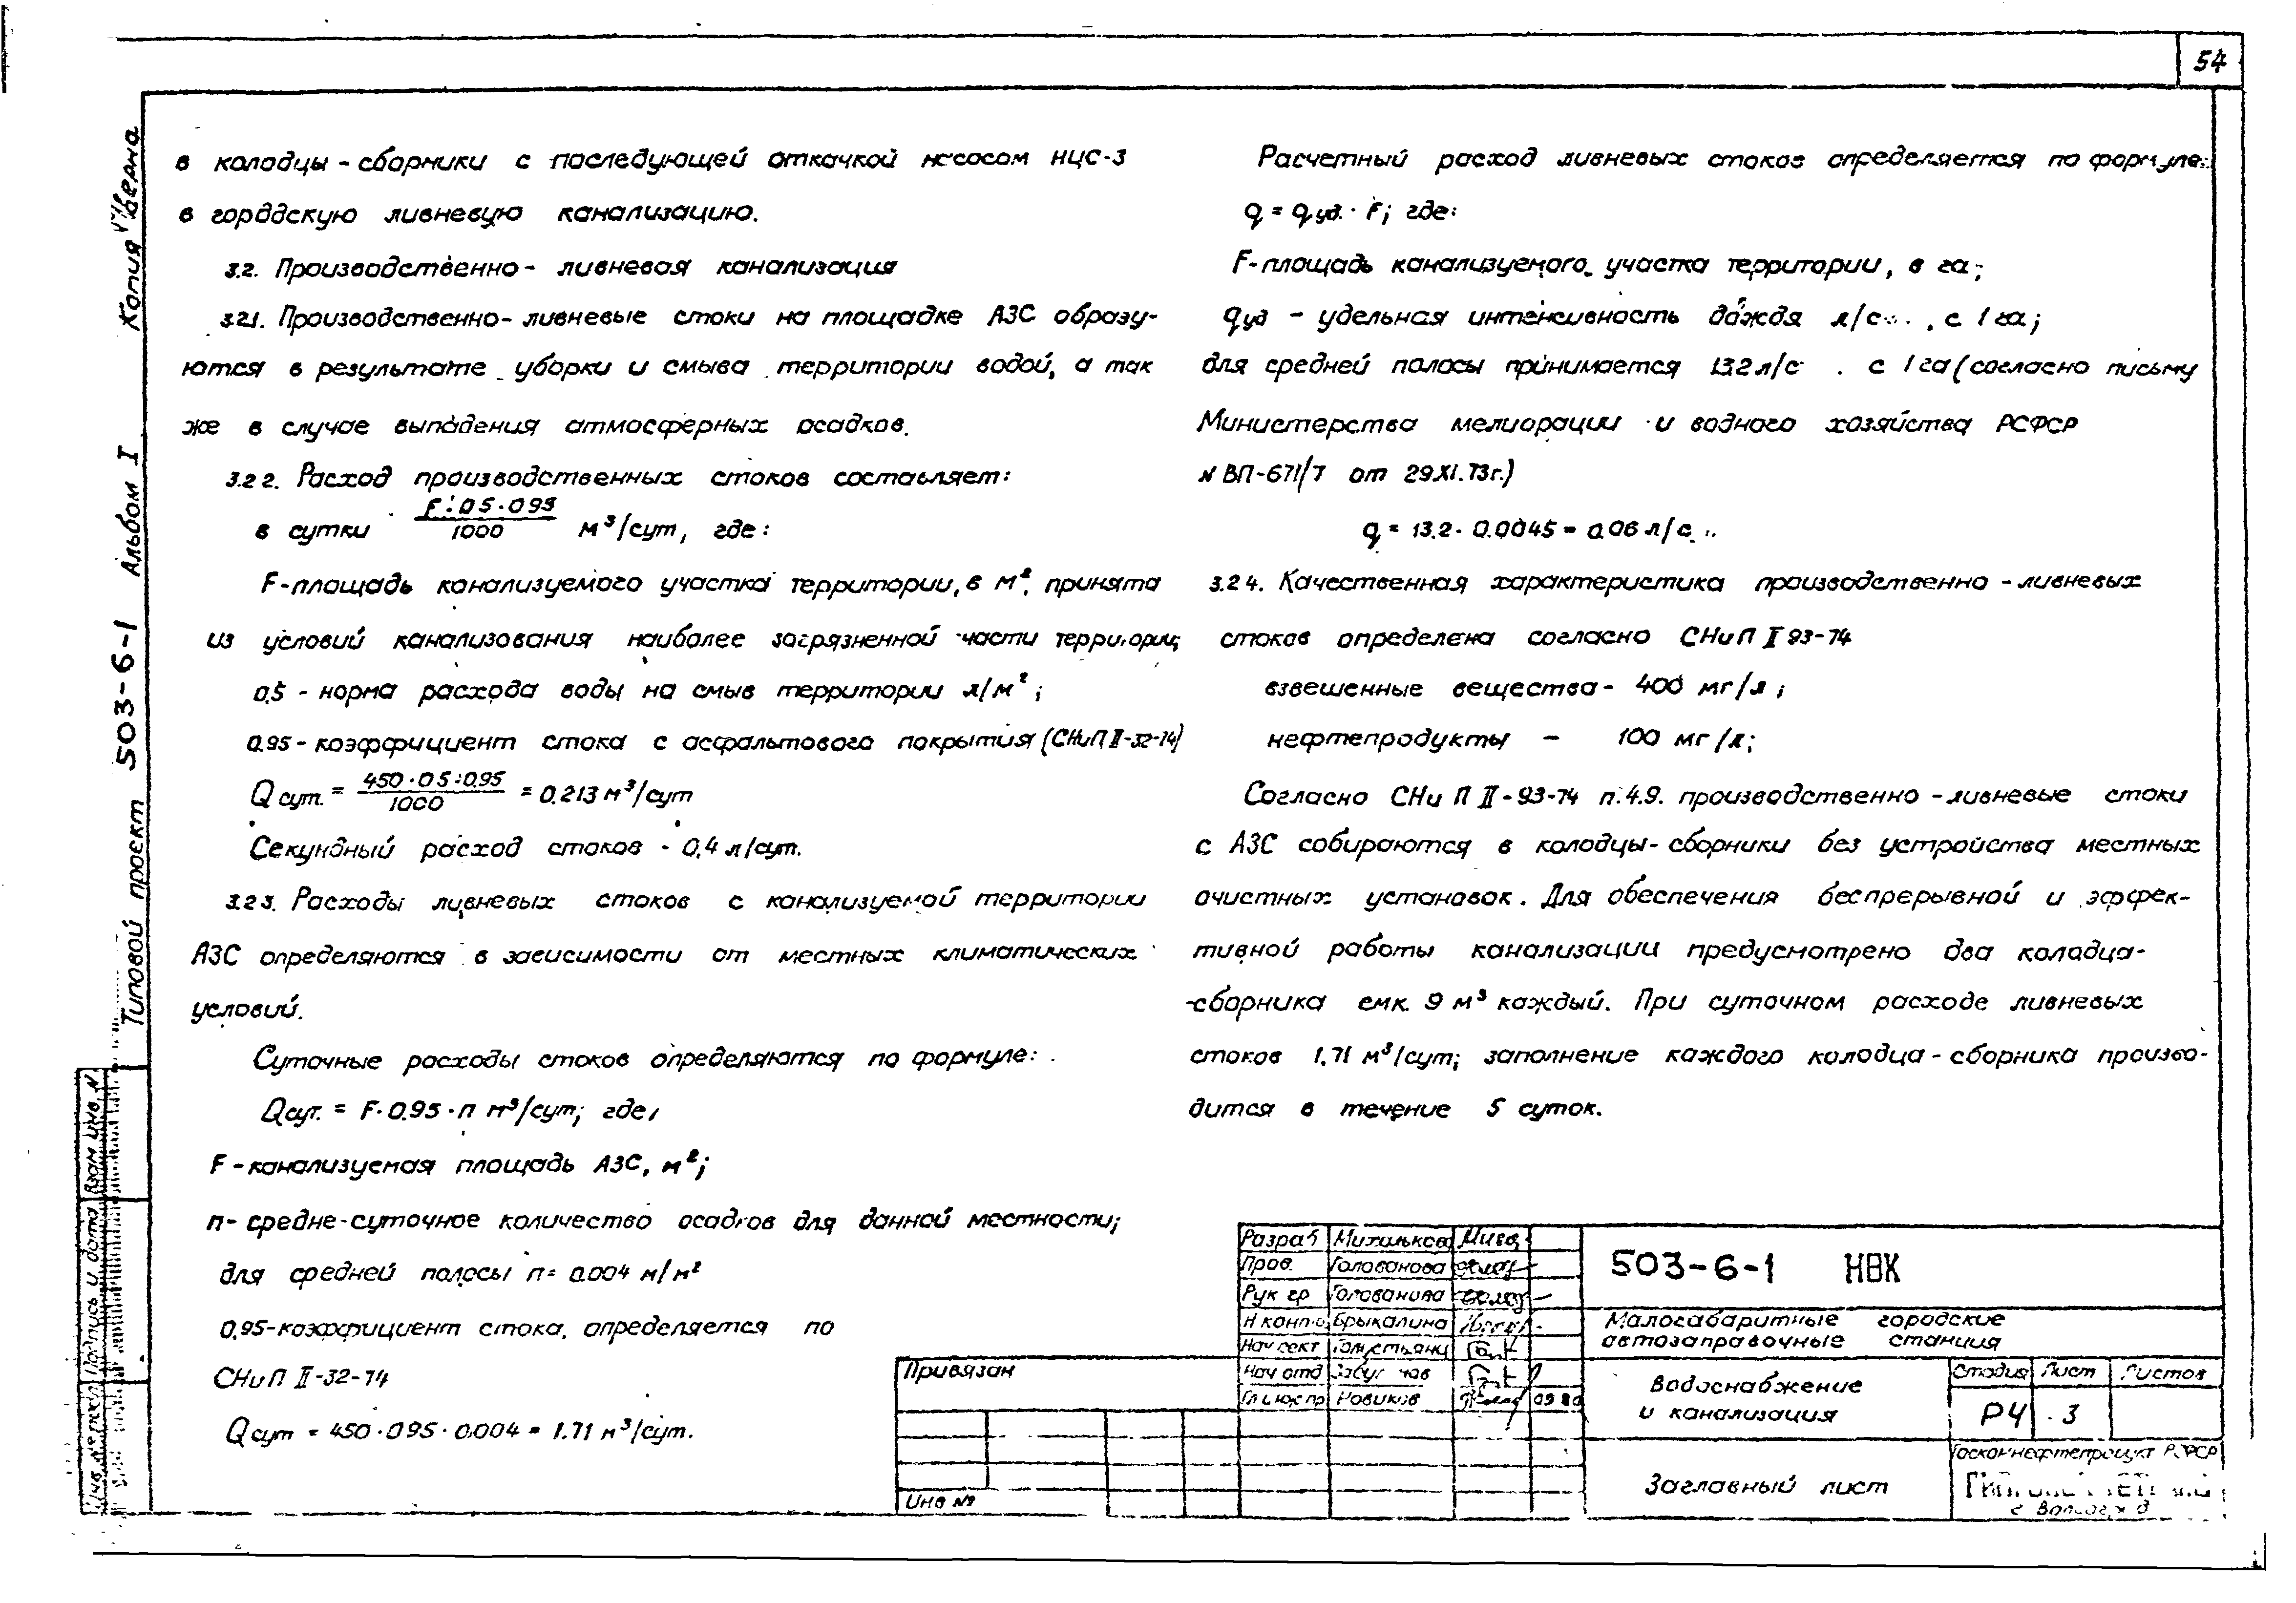 54
в колодцы - сборники с последующей откачкой насосом НЦС-3
в городскую ливневую канализацию.
3.2. Производственно - ливневая канализация
3.2.1. Производственно - ливневые стоки на площадке АЗС образу-
ются в результате уборки и смыва территории водой, а так
же в случае выпадения атмосферных осадков.
3.2.2. Расход производственных стоков составляет:
в сутки F·0.5·0.95/1000 м³/сут, где:
F-площадь канализуемого участка территории, в м², принята
из условий канализования наиболее загрязненной части территории;
0,5 - норма расхода воды на смыв территории л/м²;
0.95 - коэффициент стока с асфальтового покрытия (СНиП II-32-74)
Q сут. = 450·0.5·0.95/1000 = 0.213 м³/сут
Секундный расход стоков - 0,4 л/сут.
3.2.3. Расходы ливневых стоков с канализуемой территории
АЗС определяются в зависимости от местных климатических
условий.
Суточные расходы стоков определяются по формуле:
Qсут. = F·0.95·n м³/сут; где,
F - канализуемая площадь АЗС, м²;
n - средне-суточное количество осадков для данной местности;
для средней полосы n= 0.004 м/м²
0.95-коэффициент стока, определяется по
СНиП II-32-74
Qсут = 450·0.95·0.004 = 1.71 м³/сут.
Расчетный расход ливневых стоков определяется по формуле:
q = qуд. · F; где:
F-площадь канализуемого участка территории, в га;
qуд - удельная интенсивность дождя л/с , с 1 га;
для средней полосы принимается 13.2 л/с . с 1 га (согласно письму
Министерства мелиорации и водного хозяйства РСФСР
N ВП-671/7 от 29.XI.73г.)
q = 13.2 · 0.0045 = 0.06 л/с.
3.2.4. Качественная характеристика производственно - ливневых
стоков определена согласно СНиП II 93-74
взвешенные вещества - 400 мг/л;
нефтепродукты - 100 мг/л;
Согласно СНиП II-93-74 п.4.9. производственно - ливневые стоки
с АЗС собираются в колодцы - сборники без устройства местных
очистных установок. Для обеспечения беспрерывной и эффек-
тивной работы канализации предусмотрено два колодца-
-сборника емк. 9 м³ каждый. При суточном расходе ливневых
стоков 1.71 м³/сут; заполнение каждого колодца - сборника произво-
дится в течение 5 суток.
Типовой проект 503-6-1 Альбом I Копия верна
Взам. инв. N
Подпись и дата
Инв. № подл
Привязан
Инв №
Разраб Михалькова
Пров. Голованова
Рук гр Голованова
Н контр Брыкалина
Нач сект
Нач отд
Гл инж пр Новиков 09 80
503-6-1 НВК
Малогабаритные городские
автозаправочные станция
Водоснабжение
и канализация
Стадия Лист Листов
РЧ 3
Заглавный лист
Госкомнефтепродукт РСФСР